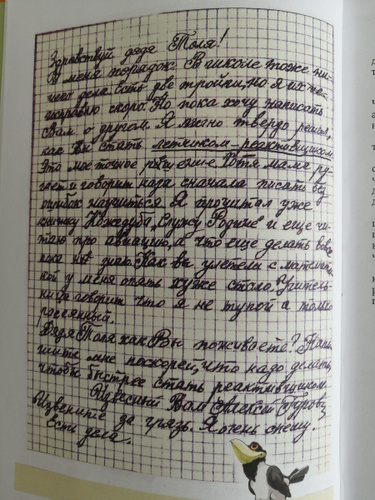 Здравствуй дядя Толя!
У меня порядок. В школе тоже ни-
чего дела. Есть две тройки, но я их не
исправлю скоро. Но пока хочу написать
Вам о другом. Я лично твердо решил,
как Вы стать летчиком-реактивщиком
Это мое точное решение. Хотя мама ру-
гает и говорит нада сначала писать без
ошибок научиться. Я прочитал уже
книжку Кожедуба „Служу Родине" и еще чи-
таю про авиацию, а что еще делать вовсе
пока не знаю. Как вы улетели с математи-
кой у меня опять хуже стало. Учитель-
ница говорит что я не тупой а только
рассеянный.
Дядя Толя как Вы поживаете? Напи-
шите мне поскорей, что надо делать,
чтобы быстрее стать реактивщиком.
Известный Вам Алексей
Извените за грязь. Я очень спешу.
Есть дела.